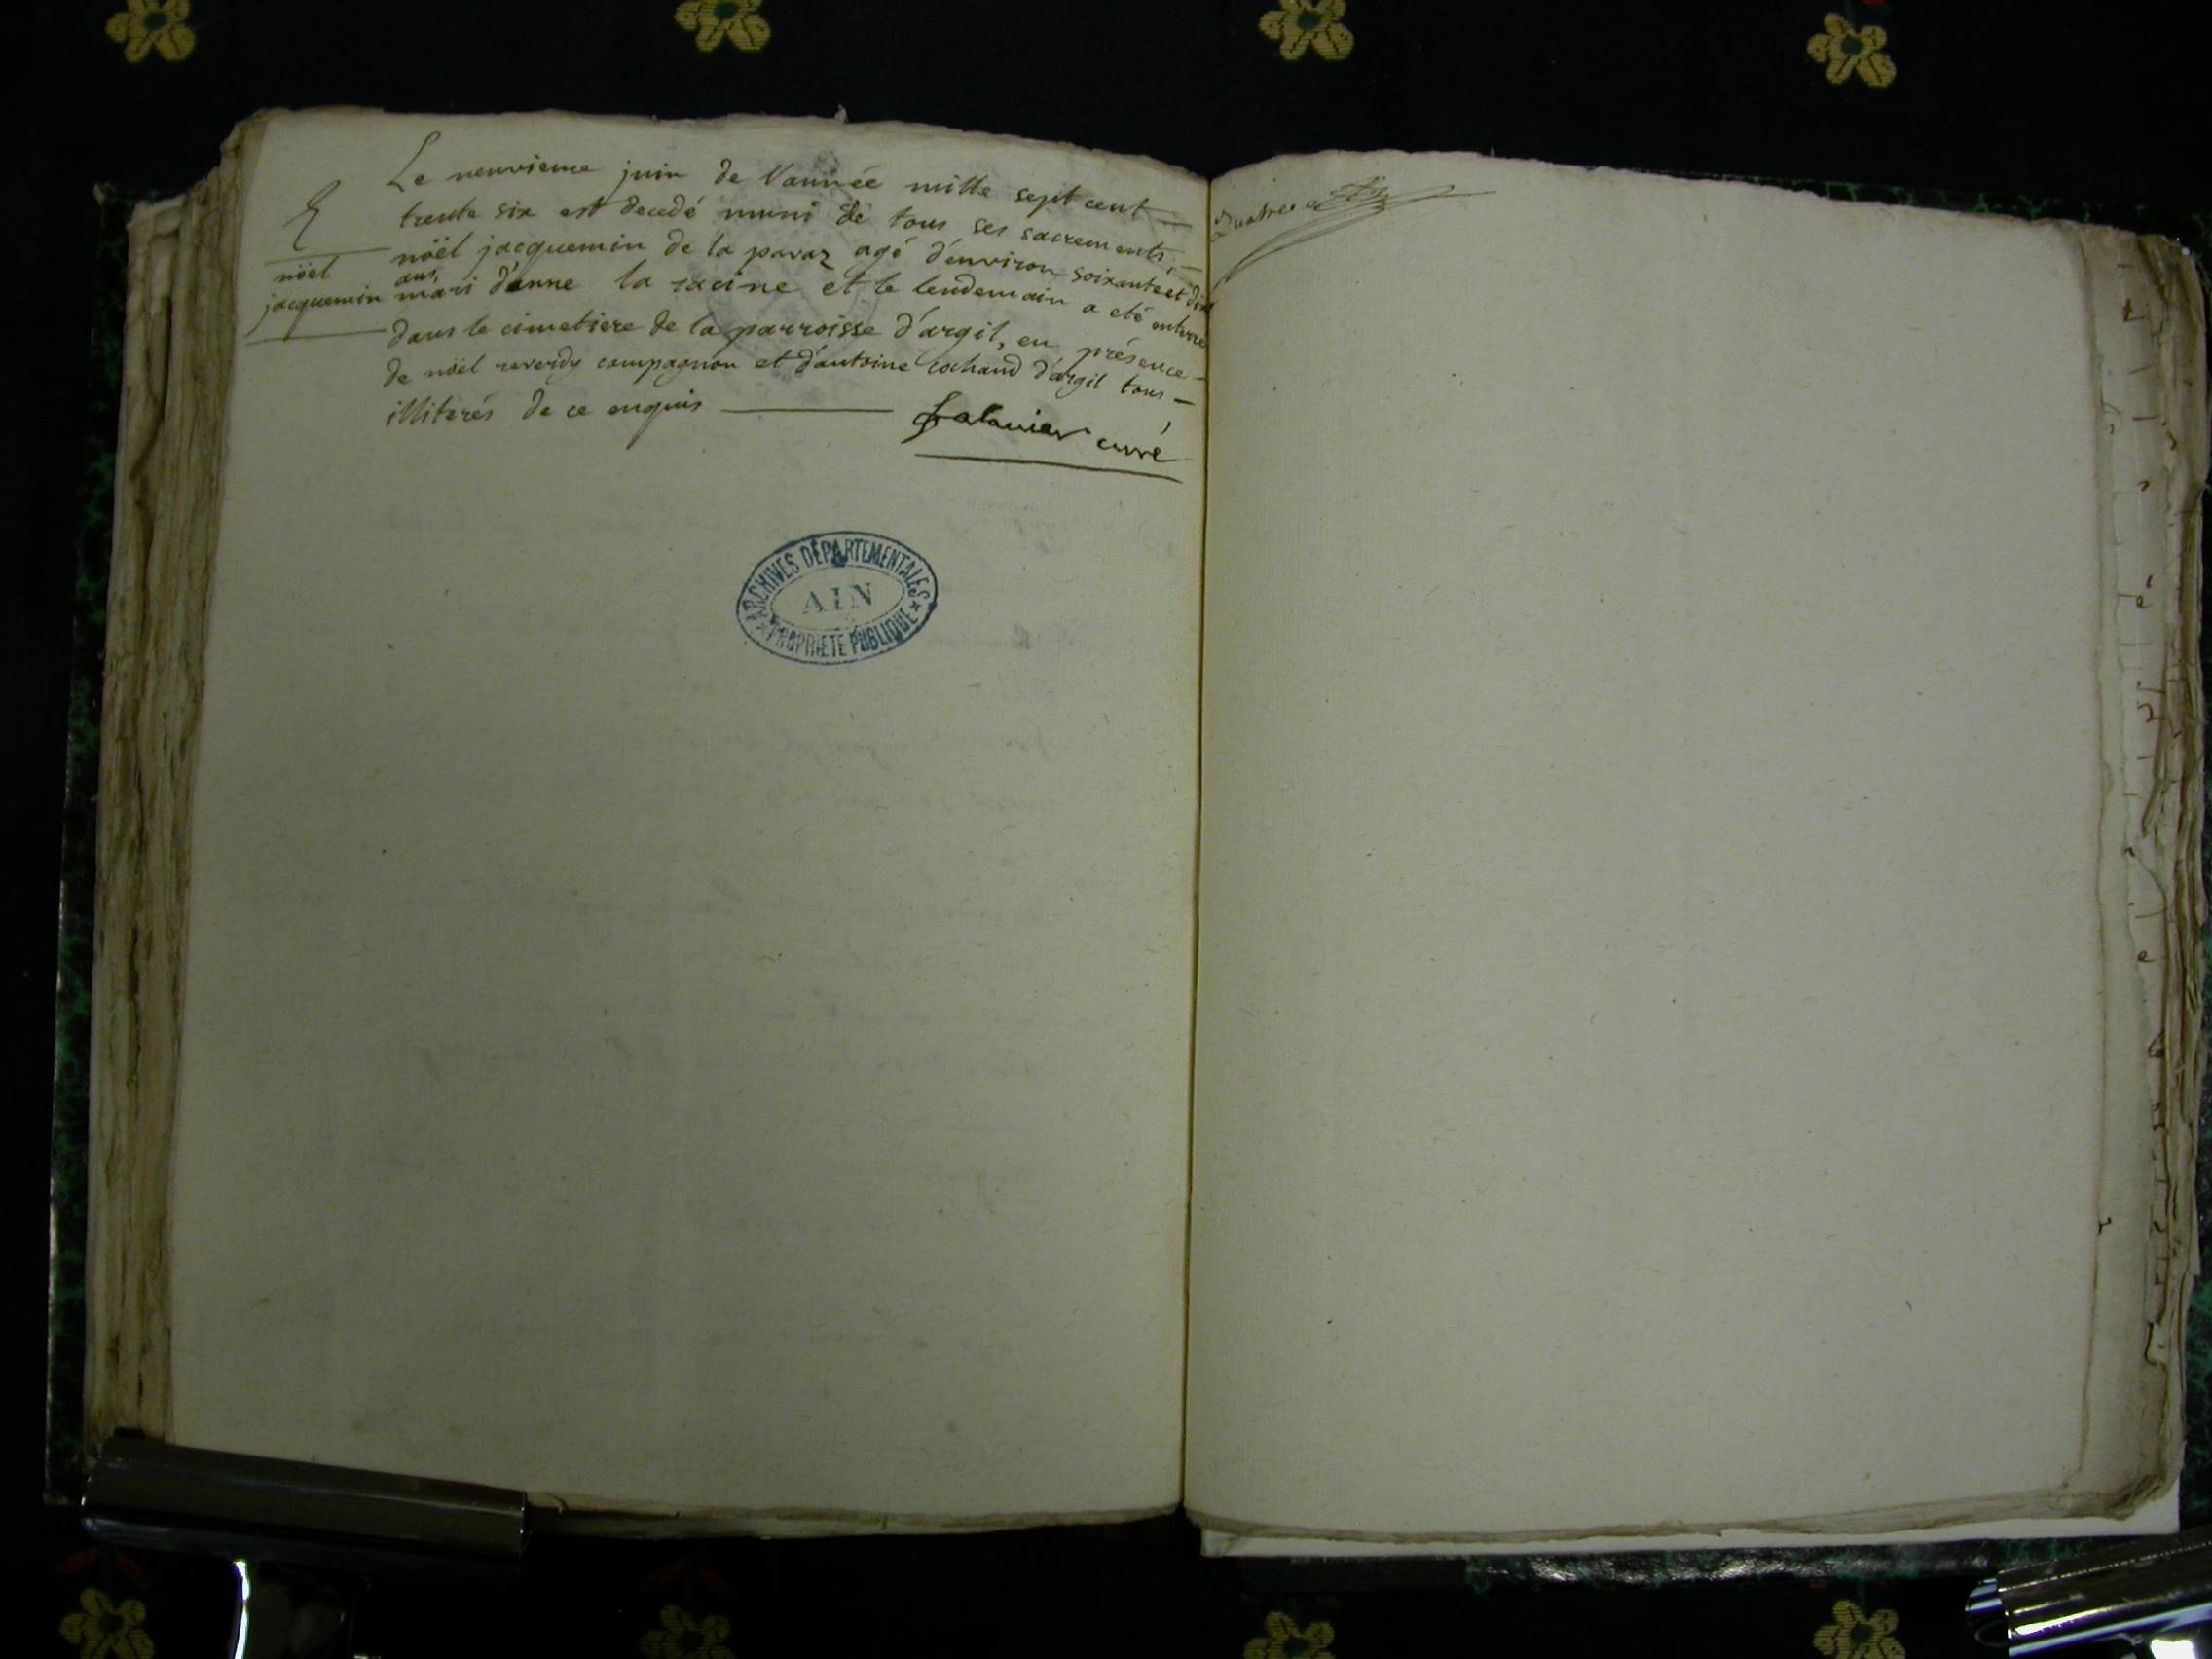 Le neuvieme juin de l'année mille sept cent
trente six est decedé muni de tous ses sacrements,
noël jacquemin de la pavaz agé d'environ soixante et dix
ans,
mari d'anne la racine et le lendemain a eté enterré
dans le cimetiere de la parroisse d'argil, en présence
de noël reverdy compagnon et d'antoine cochand d'argil tous
illiterés de ce enquis
curé
noël
jacquemin
ARCHIVES DÉPARTEMENTALES
AIN
PROPRIÉTÉ PUBLIQUE